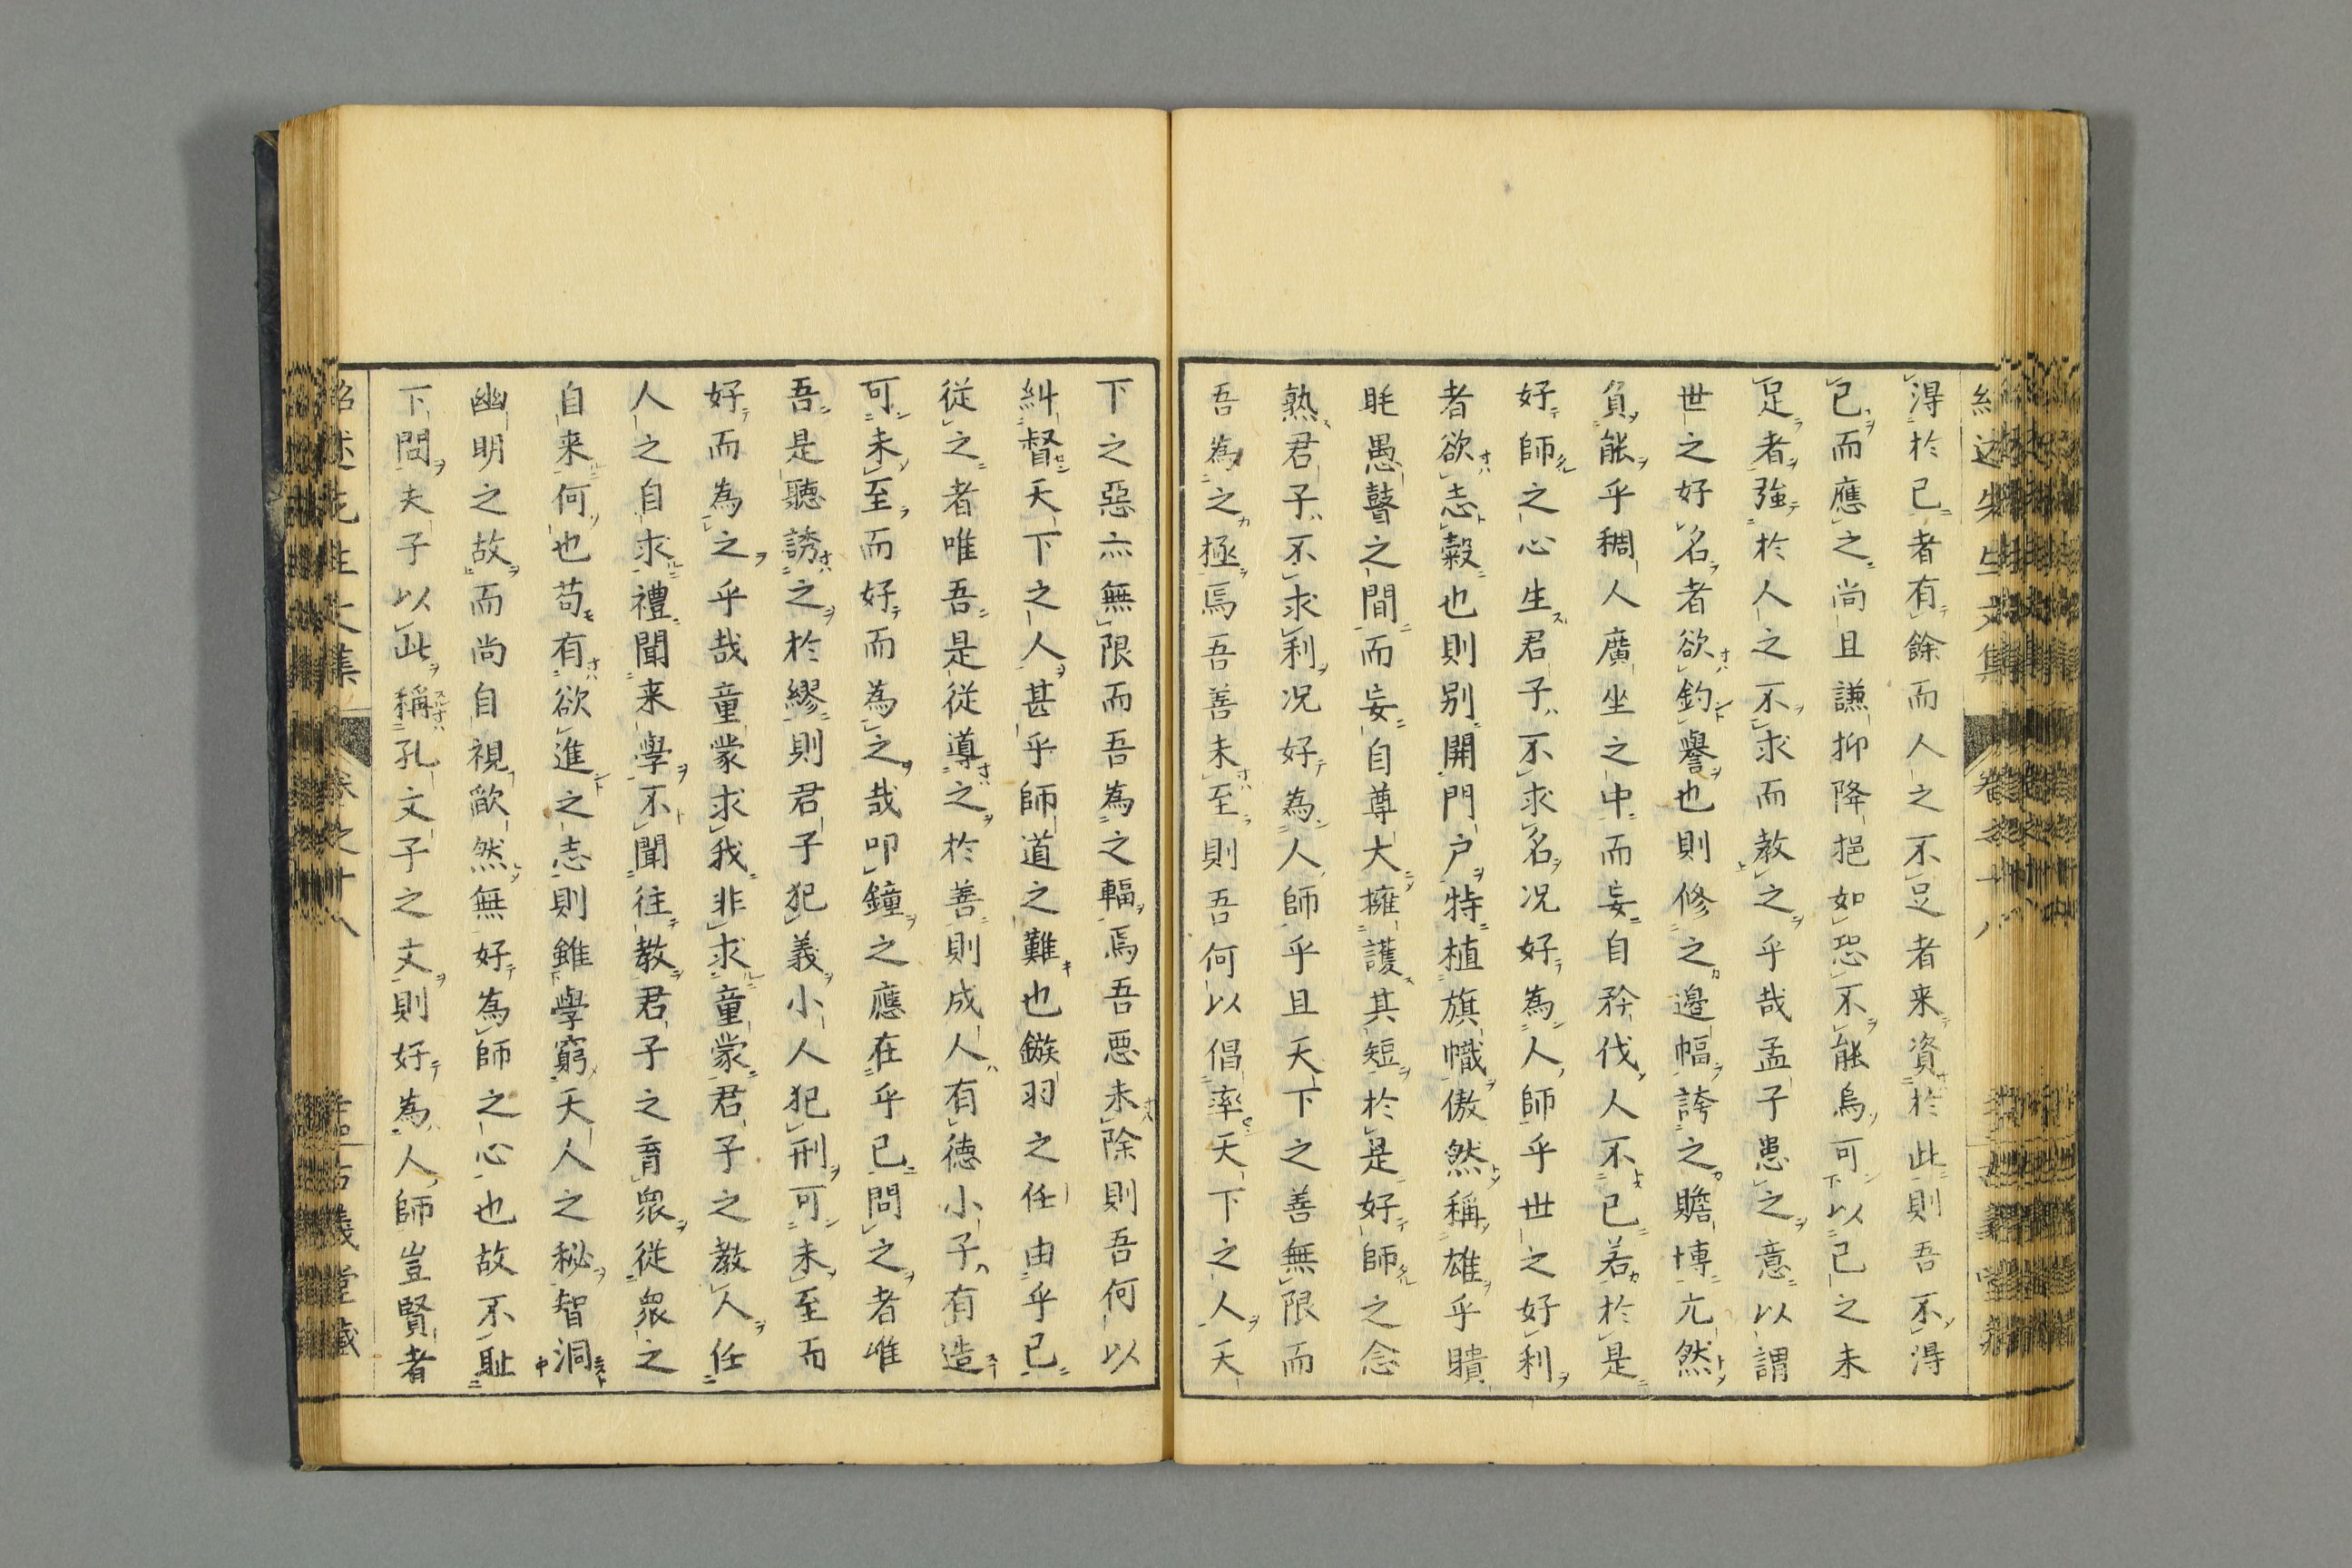 得於己者有餘而人之不足者来資於此則吾不得
已而應之尚且謙抑降挹如恐不能烏可以已之未
足者強於人之不求而教之乎哉孟子患之意以謂
世之好名者欲釣譽也則修之邊幅誇之贍博亢然
負能乎稠人廣坐之中而妄自矜伐人不已若於是
好師之心生君子不求名况好為人師乎世之好利
者欲志穀也則别開門户特植旗幟傲然稱雄乎聵
眊愚瞽之間而妄自尊大擁護其短於是好師之念
熟君子不求利况好為人師乎且天下之善無限而
吾為之極焉吾善未至則吾何以倡率天下之人天
下之惡亦無限而吾為之輻焉吾惡未除則吾何以
糾督天下之人甚乎師道之難也鏃羽之任由乎已
從之者唯吾是從導之於善則成人有德小子有造
可未至而好而為之哉叩鐘之應在乎已問之者唯
吾是聽誘之於繆則君子犯義小人犯刑可未至而
好而為之乎哉童蒙求我非求童蒙君子之教人任
人之自求禮聞来學不聞往教君子之育衆從衆之
自来何也苟有欲進之志則雖學窮天人之秘智洞
幽明之故而尚自視欿然無好為師之心也故不耻
下問夫子以此稱孔文子之文則好為人師豈賢者
紹述先生文集
卷之十八
古義堂藏